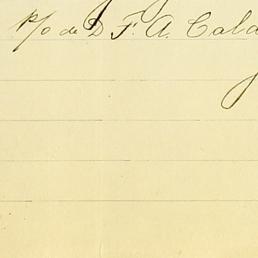 P/o de D F. A. Cala